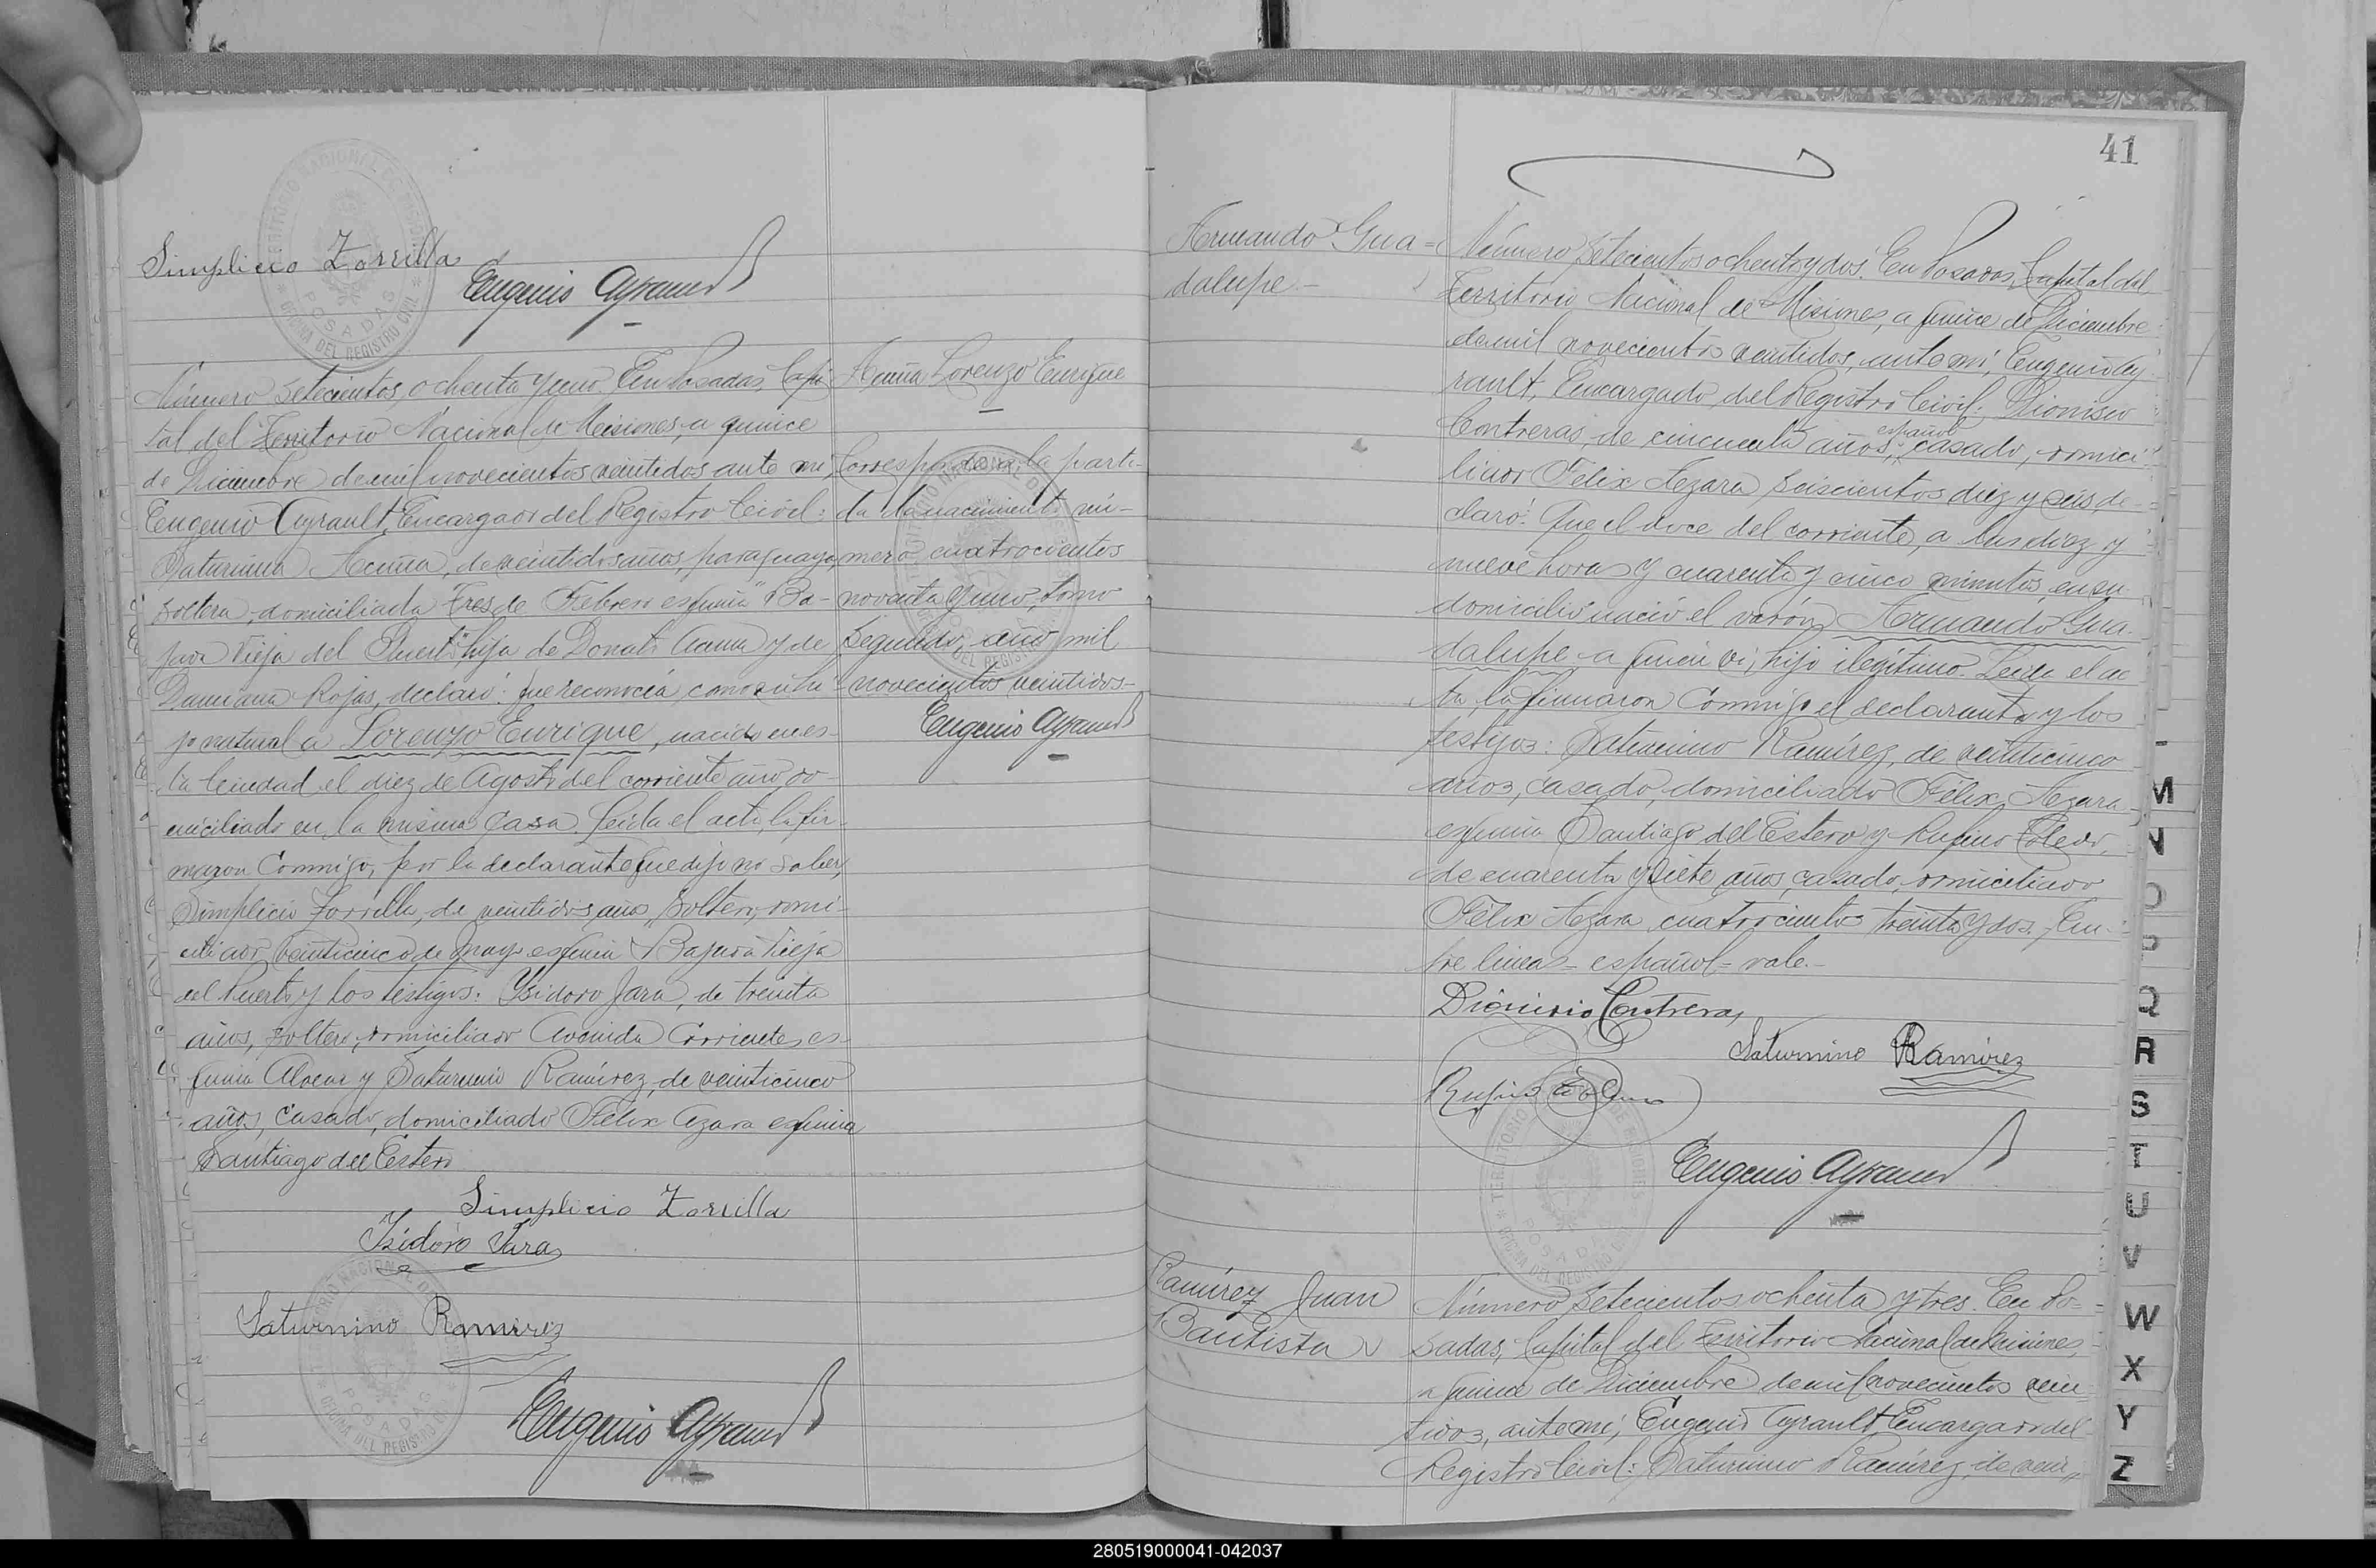 Simplicio Zorrilla
Eugenio Ayrault
Número setecientos ochenta y uno. En Posadas, Capi-
tal del Territorio Nacional de Misiones, a quince
de Diciembre de mil novecientos veintidos ante mi,
Eugenio Ayrault, Encargado del Registro Civil:
Saturnina Acuña, de veintidos años, paraguaya,
soltera, domiciliada Tres de Febrero esquina "Ba-
jada Vieja del Puerto" hija de Donato Acuña y de
Damiana Rojas, declaró: que reconocía como su hi-
jo natural a Lorenzo Enrique, nacido en es-
ta Ciudad el diez de Agosto del corriente año do-
miciliado en la misma casa. Leída el acta, la fir-
maron Conmigo, por la declarante que dijo no saber,
Simplicio Zorrilla, de veintidos años, soltero, domi-
ciliado veinticinco de Mayo esquina Bajada Vieja
del Puerto y los testigos: Ysidoro Jara, de treinta
años, soltero, domiciliado Avenida Corrientes es-
quina Alvear y Saturnino Ramírez, de veinticinco
años, casado, domiciliado Félix Azara esquina
Santiago del Estero
Simplicio Zorrilla
Isidoro Jara
Saturnino Ramirez
Eugenio Ayrault
Acuña Lorenzo Enrique
Corresponde a la parti-
da de nacimiento nú-
mero cuatrocientos
noventa y uno, tomo
segundo, año mil
novecientos veintidos-
Eugenio Ayrault
TERRITORIO NACIONAL DE MISIONES
POSADAS
OFICINA DEL REGISTRO CIVIL
41
Armando Gua=
dalupe.-
Número setecientos ochenta y dos. En Posadas, Capital del
Territorio Nacional de Misiones, a quince de Diciembre
de mil novecientos veintidos, ante mí, Eugenio Ay-
rault, Encargado del Registro Civil: Dionisio
Contreras, de cincuenta años, español casado, domici-
liado Félix Azara seiscientos diez y seis de-
claró: Que el doce del corriente, a las diez y
nueve horas y cuarenta y cinco minutos, en su
domicilio nació el varón Armando Gua-
dalupe a quien vi, hijo ilegítimo. Leída el ac
ta, la firmaron Conmigo el declarante y los
testigos: Saturnino Ramírez, de veinticinco
años, casado, domiciliado Félix Azara
esquina Santiago del Estero y Rufino Toledo,
de cuarenta y siete años, casado, domiciliado
Félix Azara cuatrocientos treinta y dos. En-
tre lineas= español= vale.-
Dionisio Contreras
Saturnino Ramírez
Rufino Toledo
Eugenio Ayrault
Ramírez Juan
Bautista
Número setecientos ochenta y tres. En Po=
sadas, Capital del Territorio Nacional de Misiones,
a quince de Diciembre de mil novecientos vein
tidos, ante mí, Eugenio Ayrault, Encargado del
Registro Civil: Saturnino Ramírez, de vein
M
N
O
P
Q
R
S
T
U
V
W
X
Y
Z
280519000041-042037